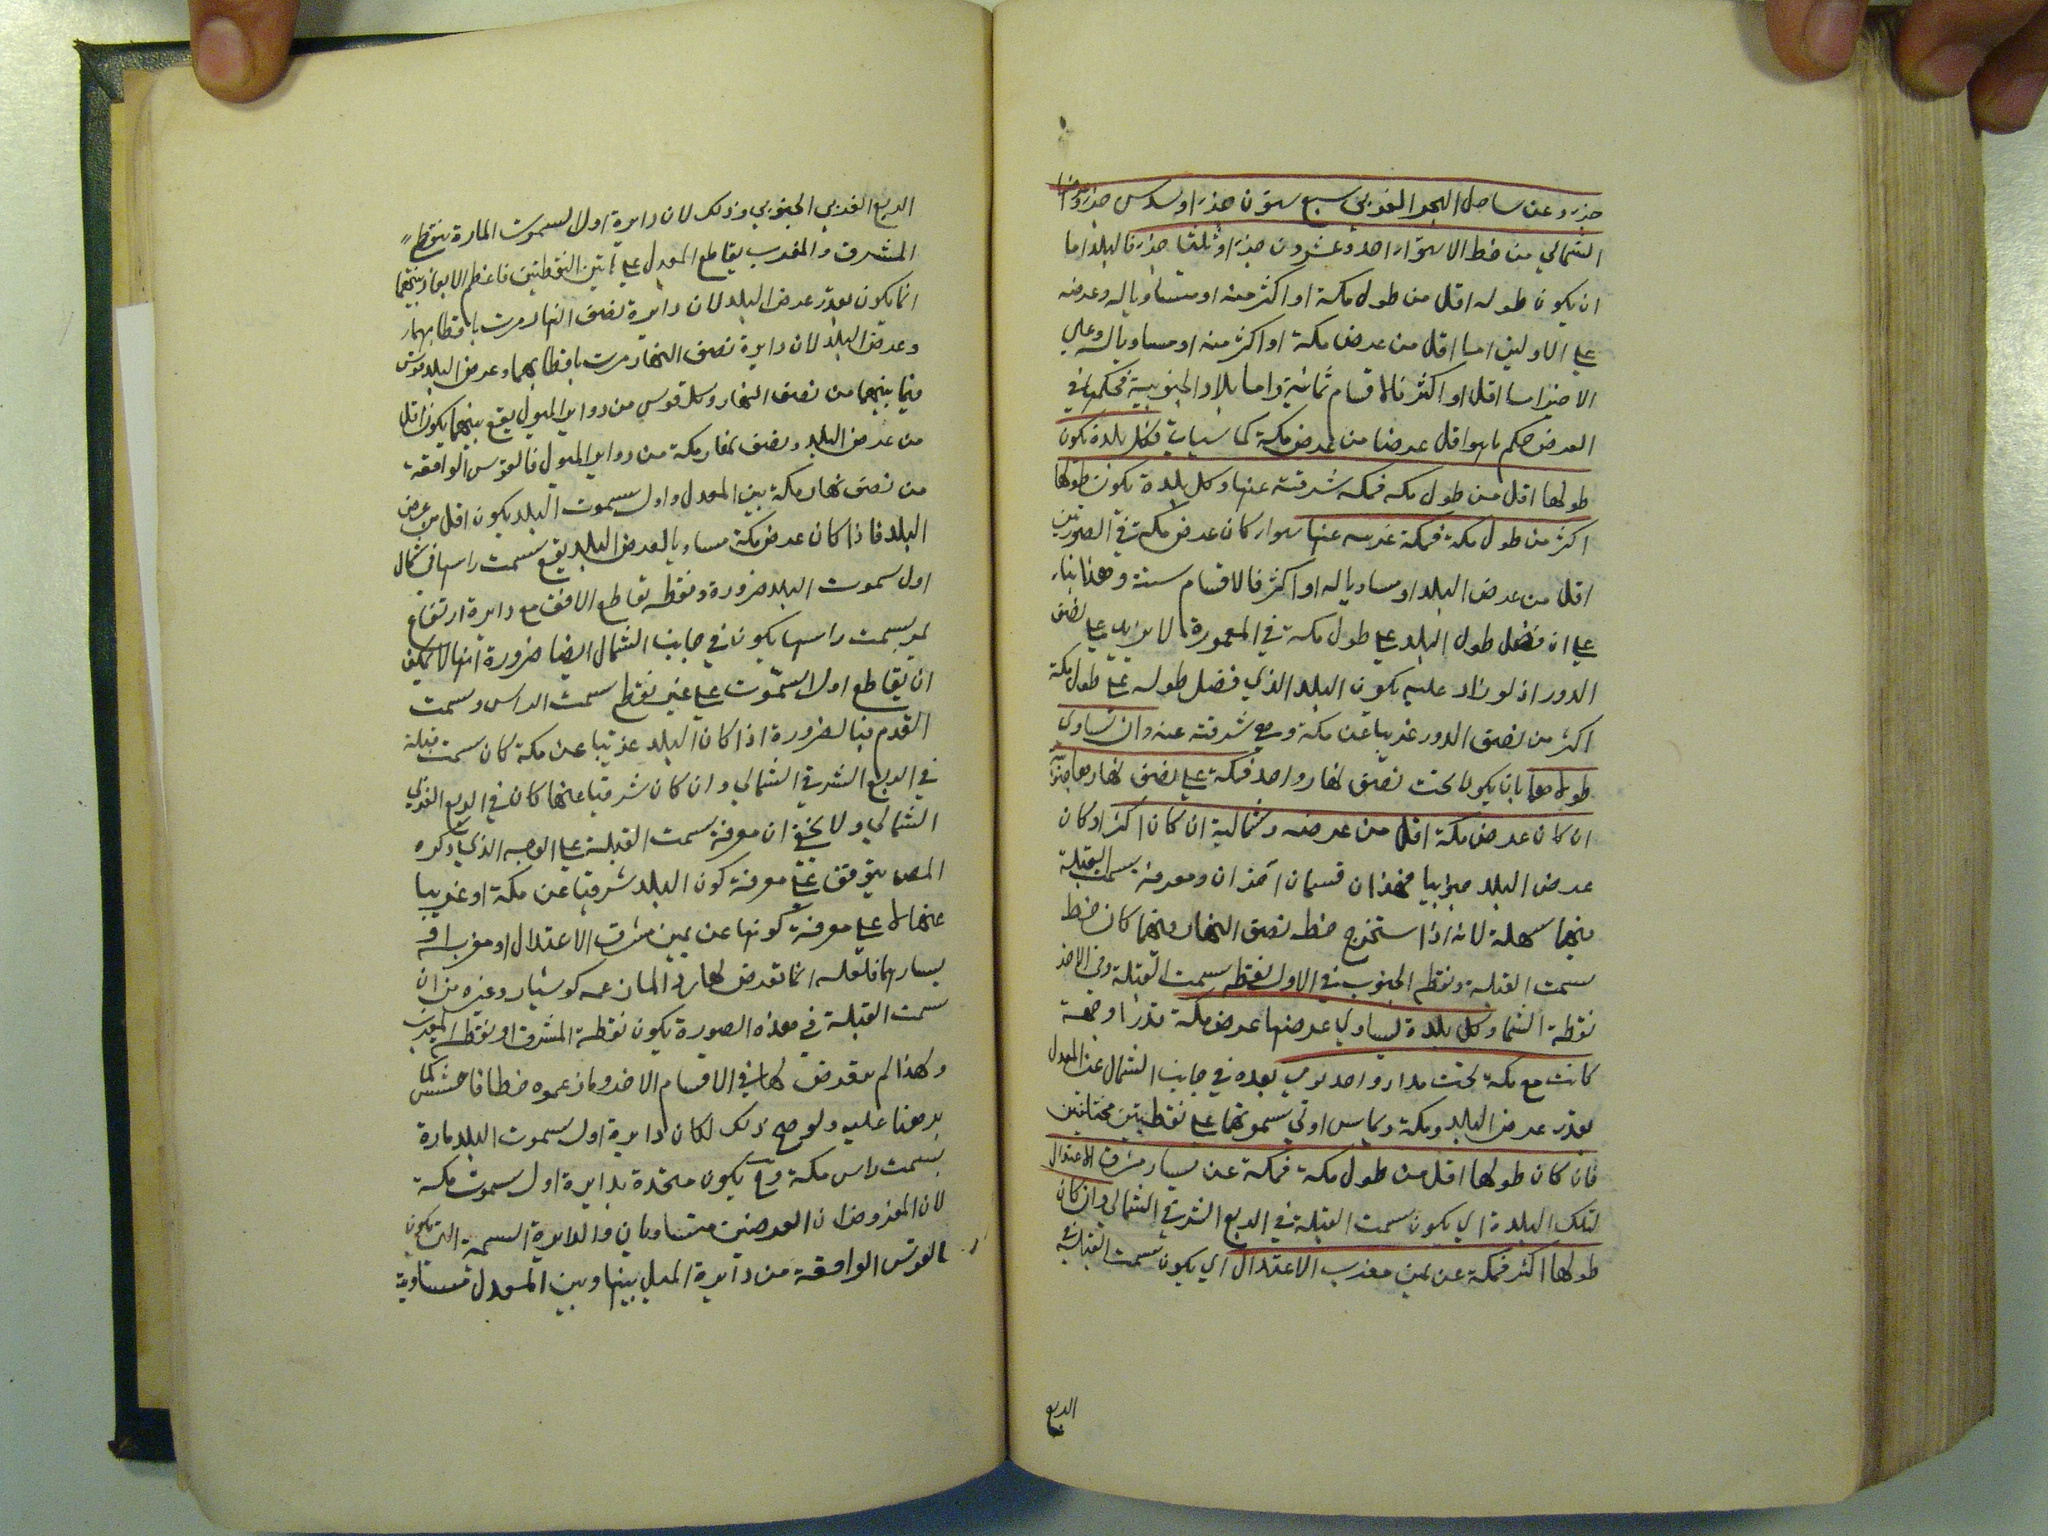 جزء وعن ساحل البحر الغربي سبع وستون جزءا وسدس جزء وعرضها
الشمالي من خط الاستواء احد وعشرون جزءا وثلثا جزء فالبلد اما
ان يكون طوله اقل من طول مكة او اكثر منه او متساويا له وعرضه
على الاولين اما اقل من عرض مكة او اكثر منه او مساويا له وعلى
الاخير اما اقل او اكثر فالاقسام ثمانية واما بلاد الجنوبية فحكمها في
العرض حكم ما هو اقل عرضا من عرض مكة كما سياتي فكل بلدة يكون
طولها اقل من طول مكه فمكه شرقية عنها وكل بلدة يكون طولها
اكثر من طول مكة فمكة غربيه عنها سواء كان عرض مكة في الصورتين
اقل من عرض البلد او مساويا له او اكثر فالاقسام ستة وهذا بناء
على ان فضل طول البلد على طول مكة في المعمورة لا يزيد على نصف
الدور اذ لو زاد عليه يكون البلد الذي فضل طوله على طول مكة
اكثر من نصف الدور غربيا عن مكة وهي شرقية عنه وان تساوى
طولاهما بان يكونا تحت نصف نهار واحد فمكة على نصف نهارها جنوبية
ان كان عرض مكة اقل من عرضه وشمالية ان كان اكثر او كان
عرض البلد جنوبيا فهذان قسمان آخران ومعرفة سمت القبلة
فيهما سهلة لانه اذا استخرج خط نصف النهار فيهما كان خط
سمت القبلة ونقطة الجنوب في الاول نقطة سمت القبلة وفي الاخر
نقطة الشمال وكل بلدة يساوي عرضها عرض مكة قدرا وجهة
كانت مع مكة تحت مدار واحد يومي بعده في جانب الشمال عن المعدل
بقدر عرض البلد ومكة ويماس اولي سموتهما على نقطتين مختلفتين
فان كان طولها اقل من طول مكة فمكة عن يسار مشرق الاعتدال
لتلك البلدة اي يكون سمت القبلة في الربع الشرقي الشمالي وان كان
طولها اكثر فمكة عن يمين مغرب الاعتدال اي يكون سمت القبلة في
الربع
الربع الغربي الجنوبي وذلك لان دايرة اول السموت المارة بنقطتي
المشرق والمغرب يقاطع المعدل على هاتين النقطتين فاعظم الابعاد بينهما
انما يكون بقدر عرض البلد لان دايرة نصف النهار مرت باقطابهما
وعرض البلد لان دايرة نصف النهار مرت باقطابهما وعرض البلد قوس
فيما بينهما من نصف النهار وكل قوس من دواير الميول يقع بينهما يكون اقل
من عرض البلد ونصف نهار مكة من دواير الميول فالقوس الواقعة
من نصف نهار مكة بين المعدل واول سموت البلد يكون اقل من عرض
البلد فاذا كان عرض مكة مساويا لعرض البلد يقع سمت راسها في شمال
اول سموت البلد ضرورة ونقطة تقاطع الافق مع دايرة ارتفاع
يمر بسمت راسها يكون في جانب الشمال ايضا ضرورة انها لا يمكن
ان يقاطع اول السموت على غير نقطتي سمت الراس وسمت
القدم فبالضرورة اذا كان البلد غربيا عن مكة كان سمت قبلته
في الربع الشرقي الشمالي وان كان شرقيا عنها كان في الربع الغربي
الشمالي ولا يخفى ان معرفة سمت القبلة على الوجه الذي ذكره
المص يتوقف على معرفة كون البلد شرقيا عن مكة او غربيا
عنها لا على معرفة كونها عن يمين مشرق الاعتدال او مغربه او
يسارهما فلعله انما تعرض لها ردا لما زعمه كوشيار وغيره من ان
سمت القبلة في هذه الصورة يكون نقطة المشرق او نقطة المغرب
ولهذا لم يتعرض لها في الاقسام الاخر وما زعموه خطا فاحش كما
برهنا عليه ولو صح ذلك لكان دايرة اول سموت البلد مارة
بسمت راس مكة وح يكون متحدة بدايرة اول سموت مكة
لان المفروض ان العرضين متساويان والدايرة السمتية التي يكون
القوس الواقعة من دايرة الميل بينها وبين المعدل متساوية